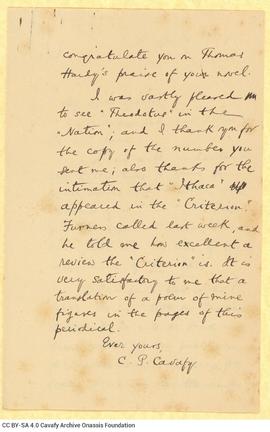 congratulate you on Thomas
Hardy's praise of your novel.
I was vastly pleased
to see "Theodotus" in the
"Nation"; and I thank you for
the copy of the number you
sent me; also thanks for the
intimation that "Ithaca"
appeared in the "Criterion".
Furness called last week, and
he told me how excellent a
review the "Criterion" is. It is
very satisfactory to me that a
translation of a poem of mine
figures in the pages of this
periodical.
Ever yours,
C. P. Cavafy
CC BY-SA 4.0 Cavafy Archive Onassis Foundation